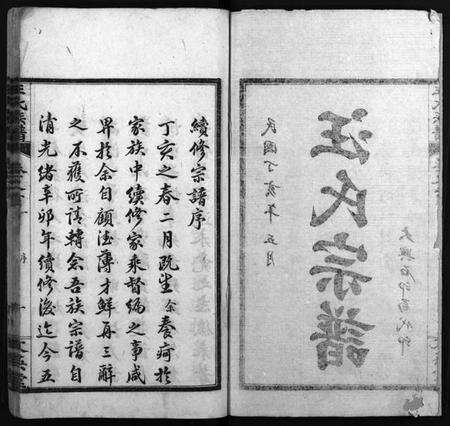 民國丁亥年 五月
汪氏宗譜
續修宗譜序
丁亥之春二月既生余養疴於
家族中續修家乘督編之事咸
畀於余自顧德薄才鮮再三辭
之不獲所請轉念吾族宗譜自
清光緒辛卯年續修後迄今五
汪氏宗譜